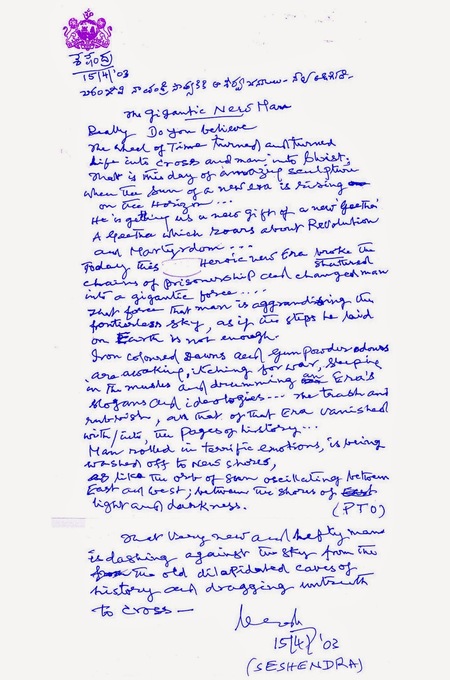 శేషేంద్ర
15/4/'03
The Gigantic New Man
Really Do you believe
The wheel of Time turned and turned
Life into cross and man, into Christ;
That is this day of amazing sculpture
When the Sun of a new era is rising
on the Horizon...
He is gifting us a new gift of a new 'Geetha'
A Geetha which roars about Revolution
and Martyrdom...
Today this Heroic new Era broke the
shattered
chains of prisonership and changed man
into a gigantic force....
That force that man is aggrandising the
frontierless sky, as if the steps he laid
on Earth is not enough.
Iron coloured dawns and gun powder odours
are awaking, itching for war, sleeping
in the muscles and drumming Era's
slogans and ideologies--- The trash and
rubbish, all that of that Era vanished
with/into, the pages of history...
Man rolled in terrific emotions, is being
washed off to New shores,
as like the orb of sun oscillating between
East and west; between the shores of East
light and darkness.
(PTO)
That very new and hefty man
is dashing against the sky from the
from the old dilapidated caves of
history and dragging untruth
to cross—
15/4/'03
(SESHENDRA)